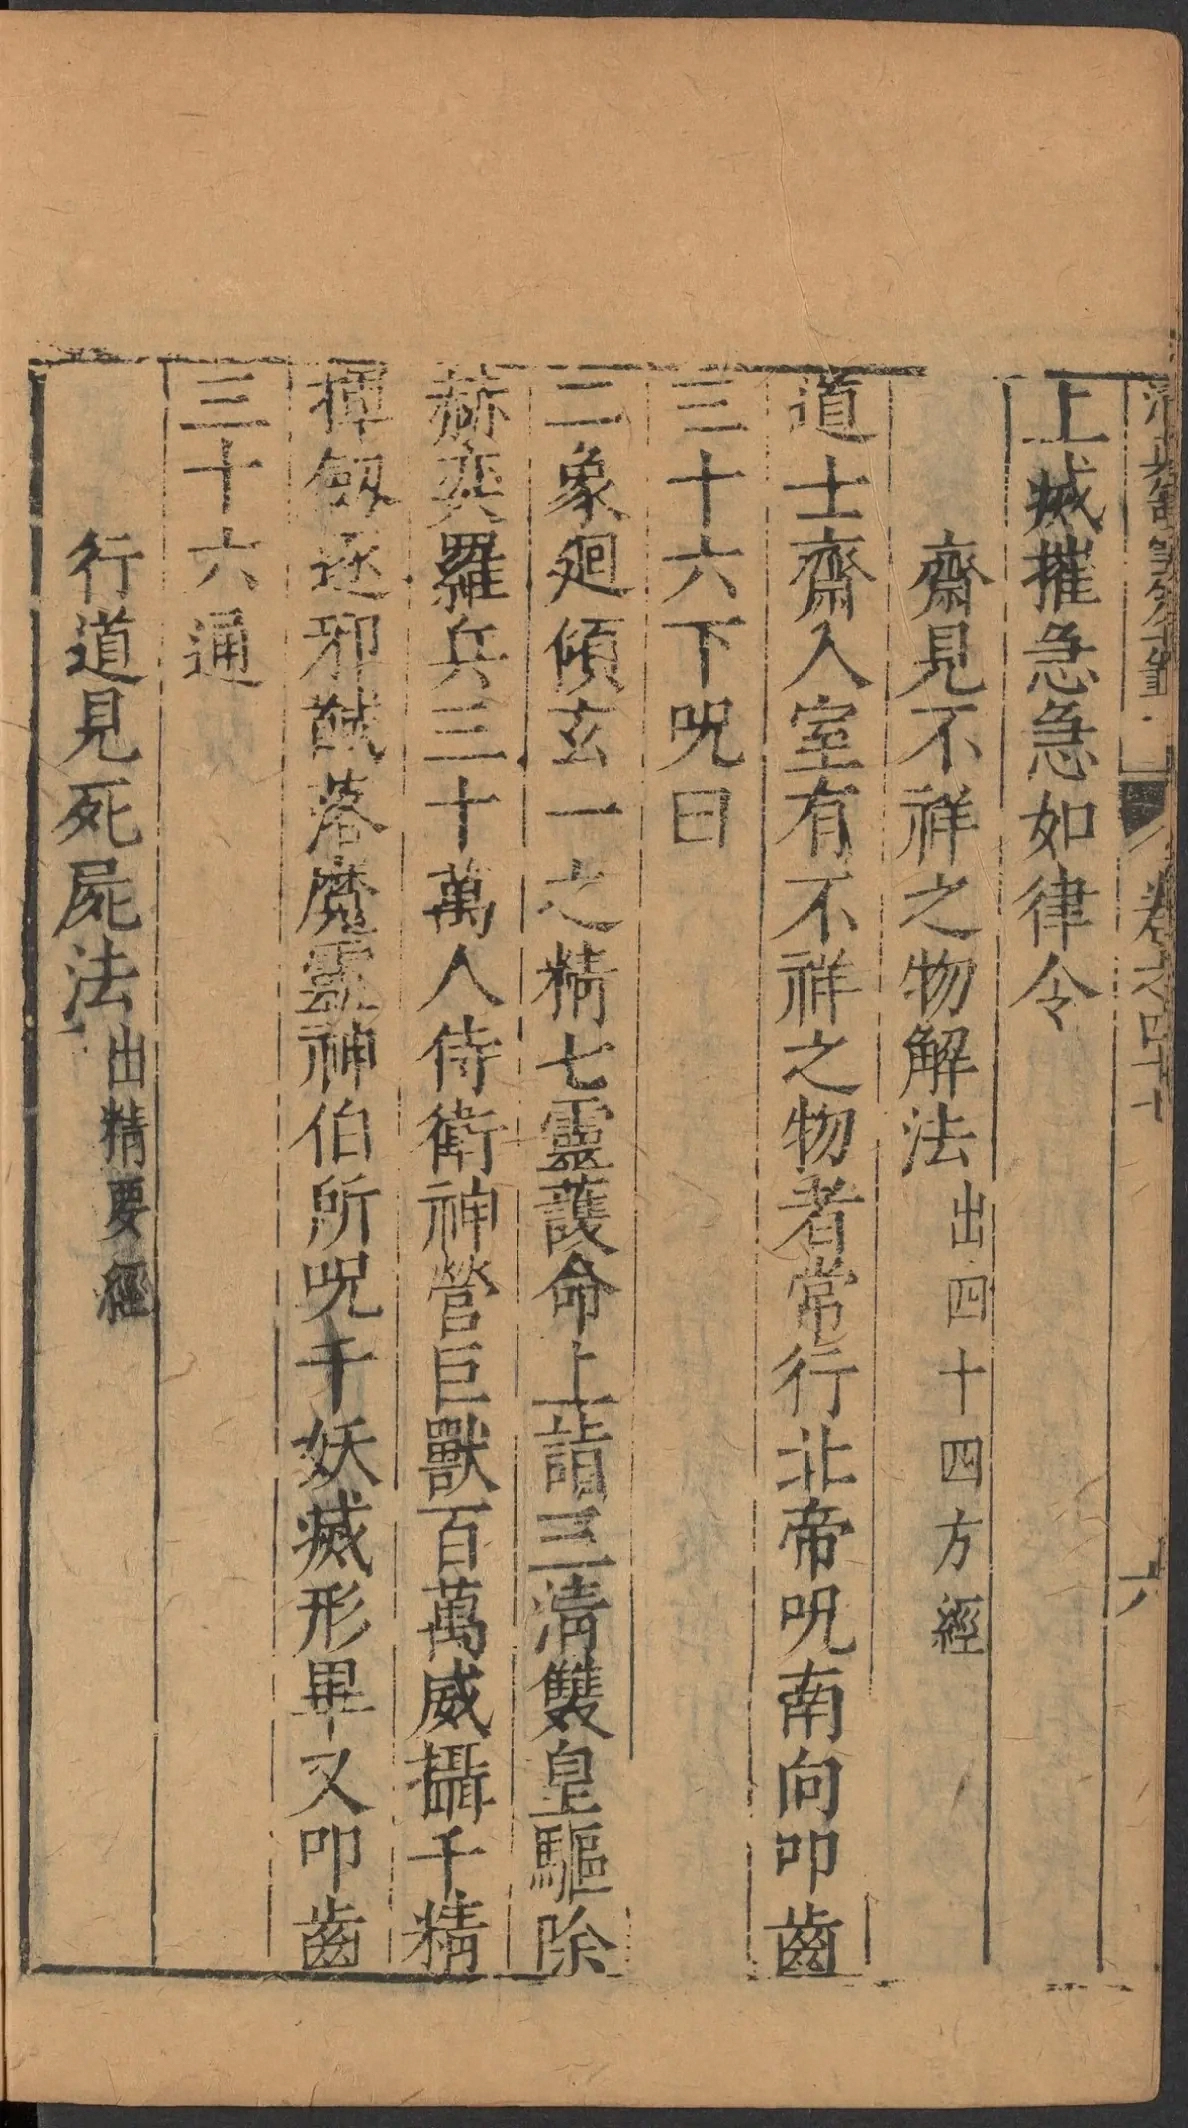 卷之四十七 六
上㓕摧急急如律令
齋見不祥之物解法出四十四方經
道士齋入室有不祥之物者常行北帝呪南向叩齒
三十六下呪曰
二象廻傾玄一之精七靈護命上詣三清雙皇驅除
赫奕羅兵三十萬人侍衛神營巨獸百萬威攝千精
揮劔逐邪馘落魔靈神伯所呪千妖㓕形畢又叩齒
三十六通
行道見死屍法出精要經